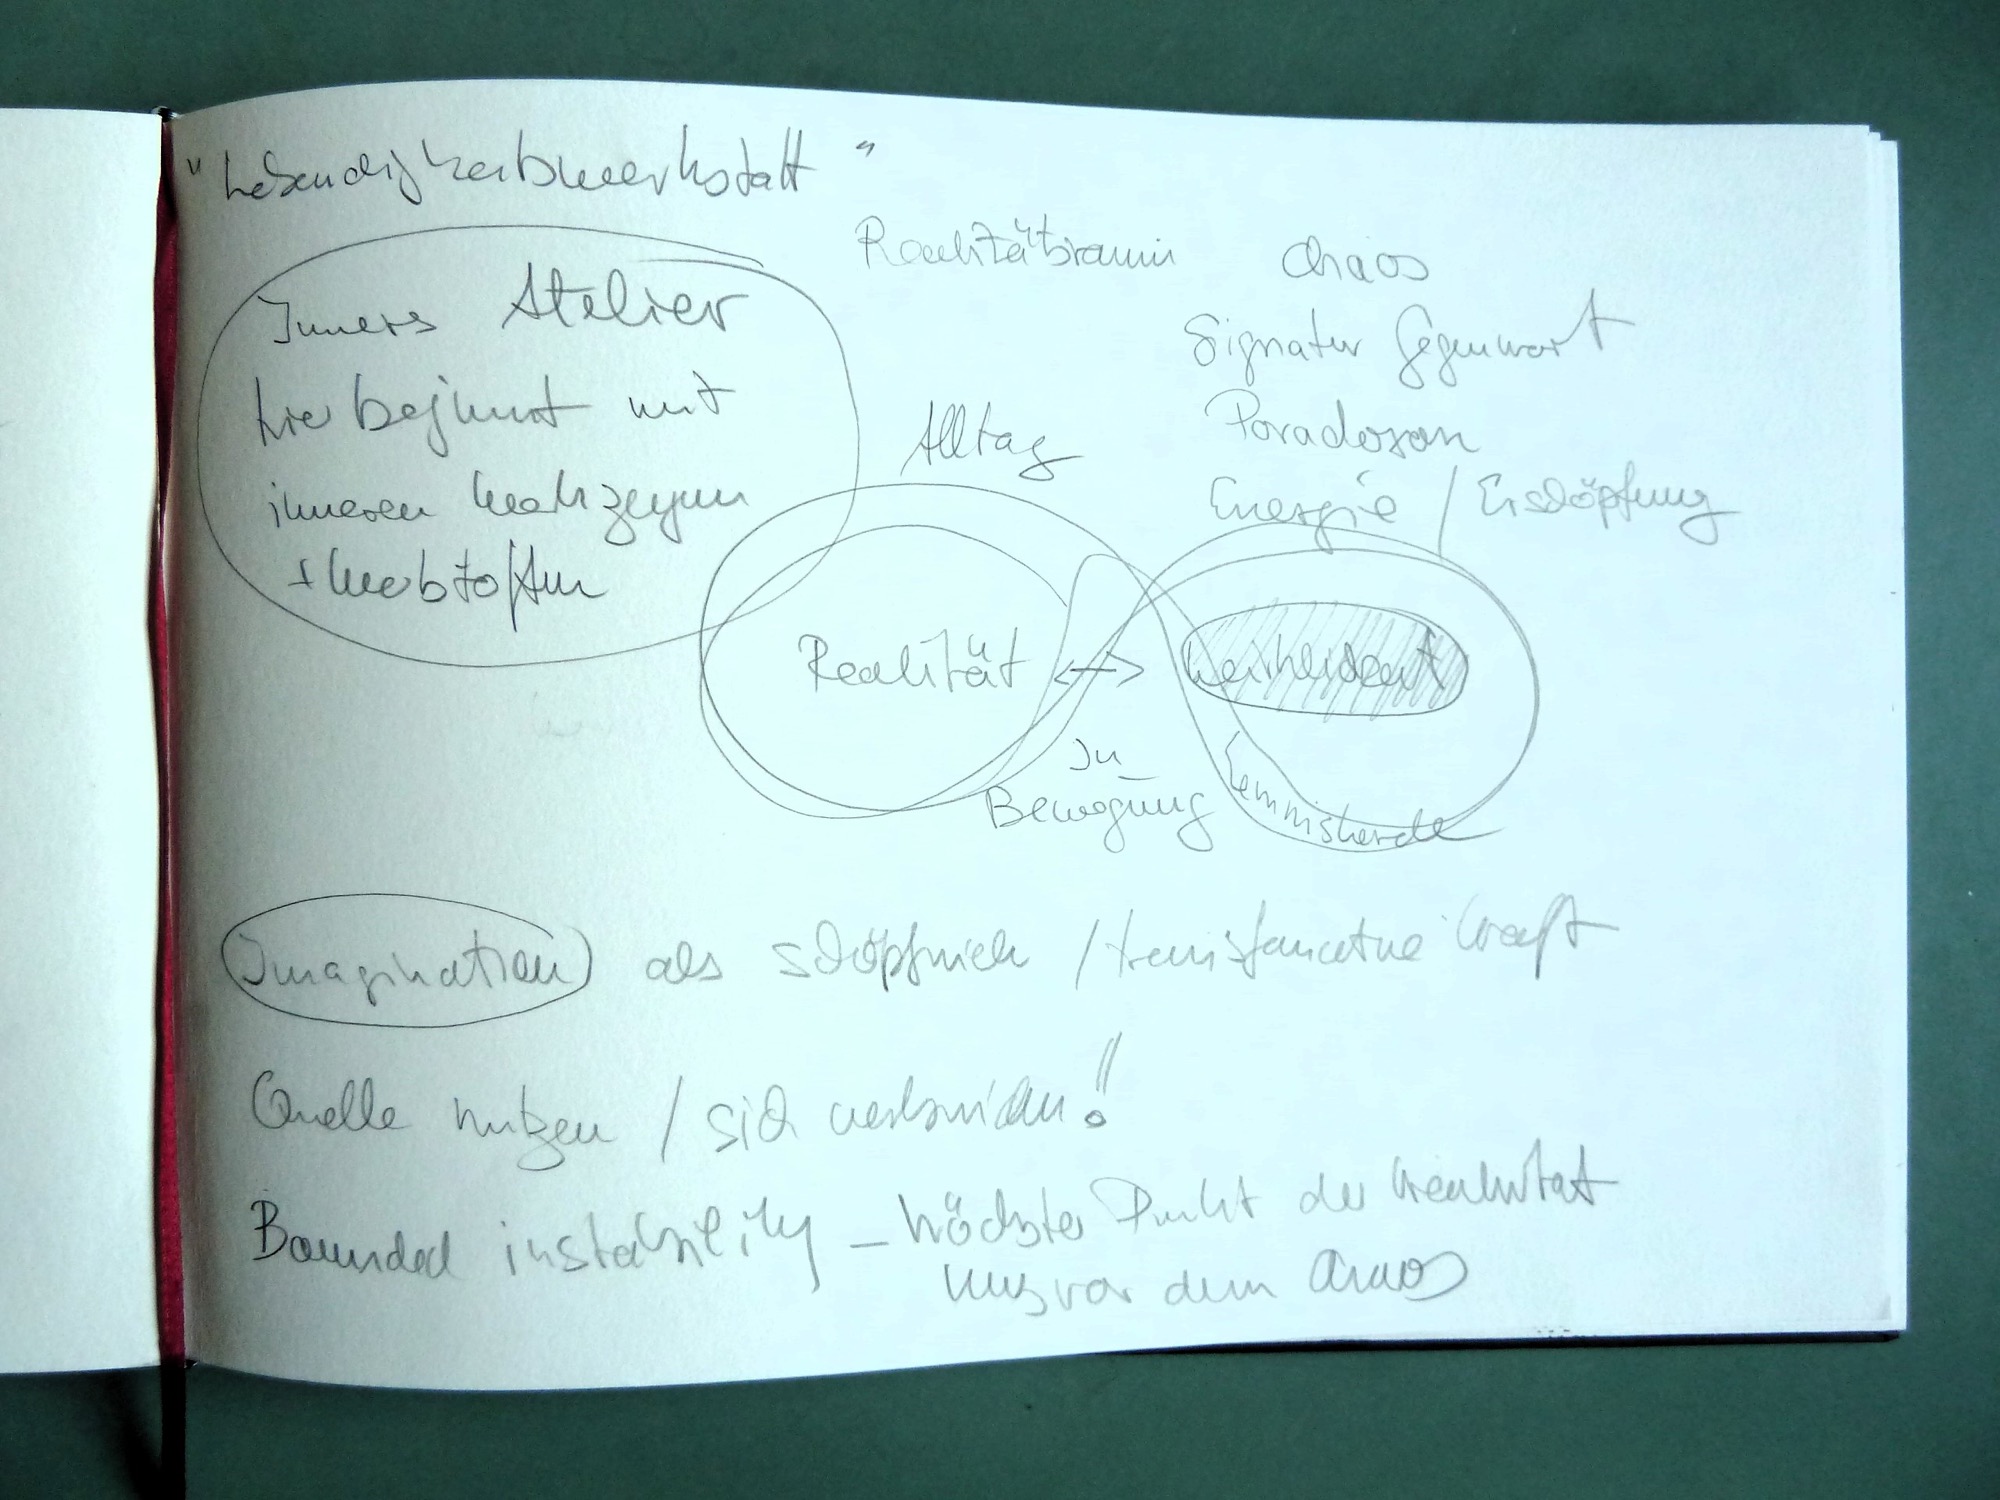 "Lebendigkeitswerkstatt"
Realitätsraum
Chaos
Inneres Atelier
hier beginnt mit
inneren Werkzeugen
+ Werkstoffen
Signatur Gegenwart
Paradoxon
Energie / Erschöpfung
Alltag
Realität ↔
In
Bewegung
Lemniskate
Imagination als schöpferisch / transformative Kraft
Quelle nutzen / sich verbinden!
Bounded instability – höchster Punkt der Kreativität
kurz vor dem Chaos